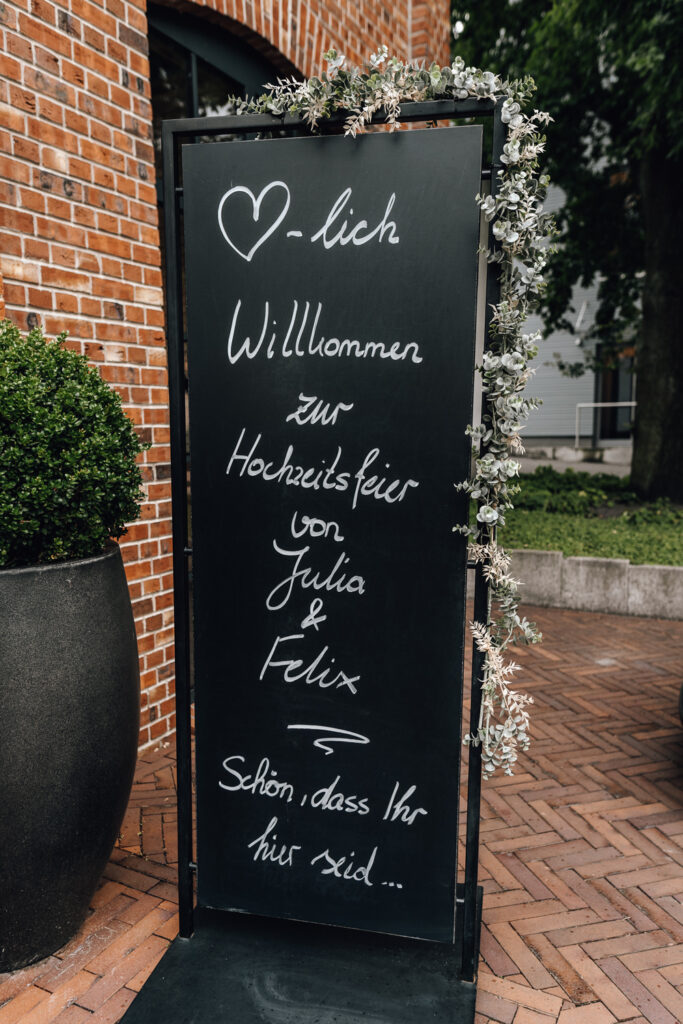 ♡-lich
Willkommen
zur
Hochzeitsfeier
von
Julia
&
Felix
Schön, dass Ihr
hier seid...